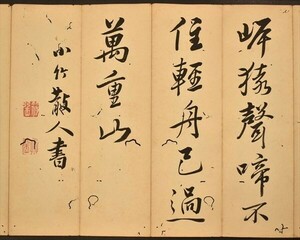 岸猿聲啼不
住輕舟已過
萬重山
小竹散人書